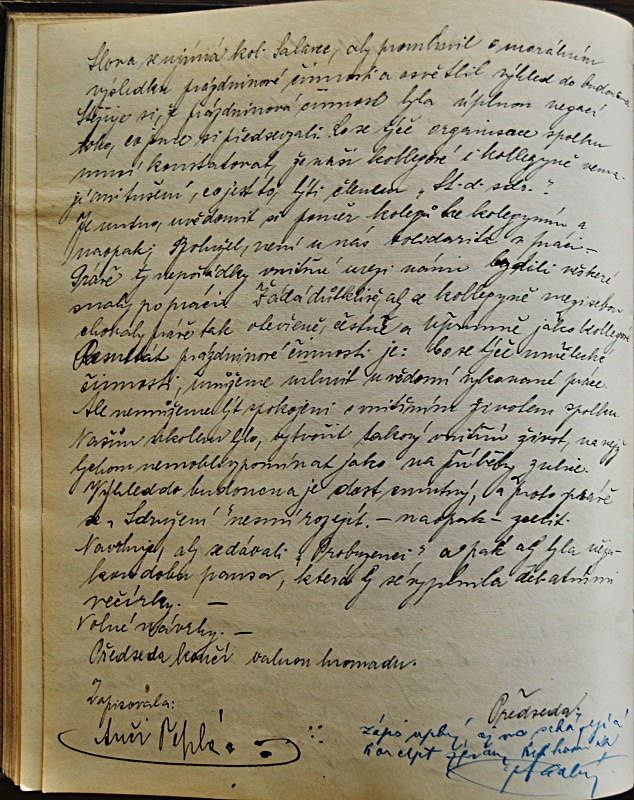 Slova se ujímá kol. Salavec, aby promluvil o morálním
výsledku prázdninové činnosti a osvětlil výhled do budoucna
Stěžuje si, že prázdninová činnost byla úplnou negací
toho, co jsme si předsevzali. Co se týče organisace spolku
musí konstatovat, že naši kollegové i kollegyně nema-
jí ani tušení, co jest to, býti členem „St. d. sdr."
Je nutno, uvědomit si poměr kolegů ke kolegyním a
naopak; Bohužel, není u nás solidarita v práci -
Právě ty nepořádky vnitřní mezi námi veškeré
snahy po práci. Žádá důtklivě, aby se kollegyně
chovaly právě tak otevřeně, čestně a upřímně jako kollegové
Resultat prázdninové činnosti je: co se týče umělecké
činnosti; můžeme mluvit u vědomí vykonané práce
Ale nemůžeme být spokojeni s vnitřním životem spolku
Naším úkolem bylo, vytvořit takový vnitřní život, na nějž
bychom nemohli vzpomínat jako na
Výhled do budoucna je dost smutný, a proto právě
se „Sdružení" nesmí rozejít. - naopak -
Navrhuje, aby se dávali „ " a pak aby byla něja-
kou dobu pausa, která by se vyplnila debatními
večírky. -
Volné návrhy. -
Předseda končí valnou hromadu.
Zapisovala:
Anči Teplá
Předseda:
zápis úplný, až na scházející
koncept zprávy